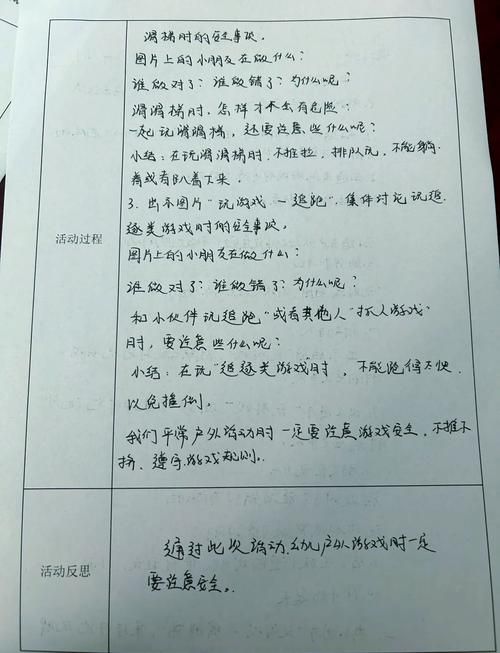 滑梯时的安全事项。
图片上的小朋友在做什么?
谁做对了?谁做错了?为什么呢?
滑滑梯时,怎样才不会有危险?
一起玩滑滑梯,还要注意些什么呢?
小结:在玩滑滑梯时,不推拉,排队玩,不能躺
着或者趴着下来。
3. 出示图片"玩游戏—追跑",集体讨论玩追
逐类游戏时的安全事项。
活动过程
图片上的小朋友在做什么?
谁做对了?谁做错了?为什么呢?
和小伙伴玩"追跑"或者其他人"抓人游戏"
时,要注意些什么呢?
小结:在玩"追逐类游戏"时,不能跑得太快.
以免撞倒。
我们平常户外活动时一定要注意游戏安全,不推不
挤、遵守游戏规则.
通过此次活动,幼儿户外游戏时一定
活动反思
要注意安全。